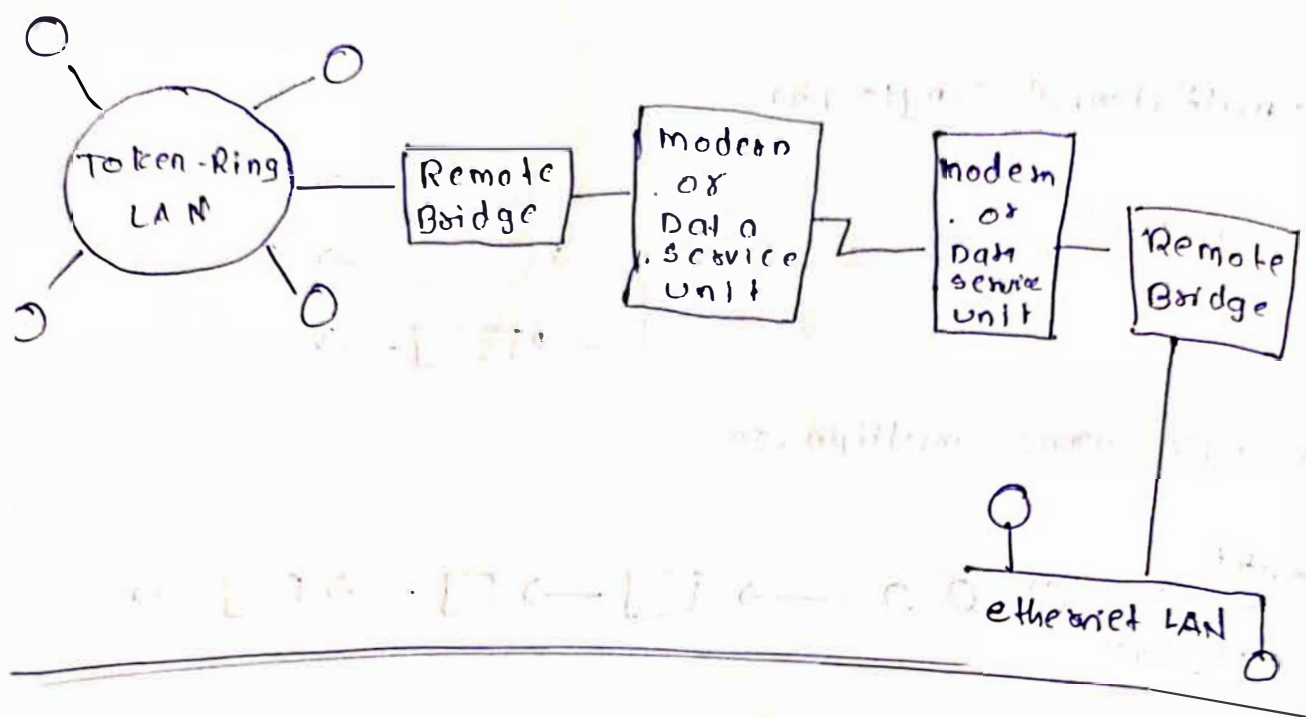 Token-Ring
LAN
Remote
Bridge
modem
or
Data
service
unit
modem
or
Data
service
unit
Remote
Bridge
ethernet LAN